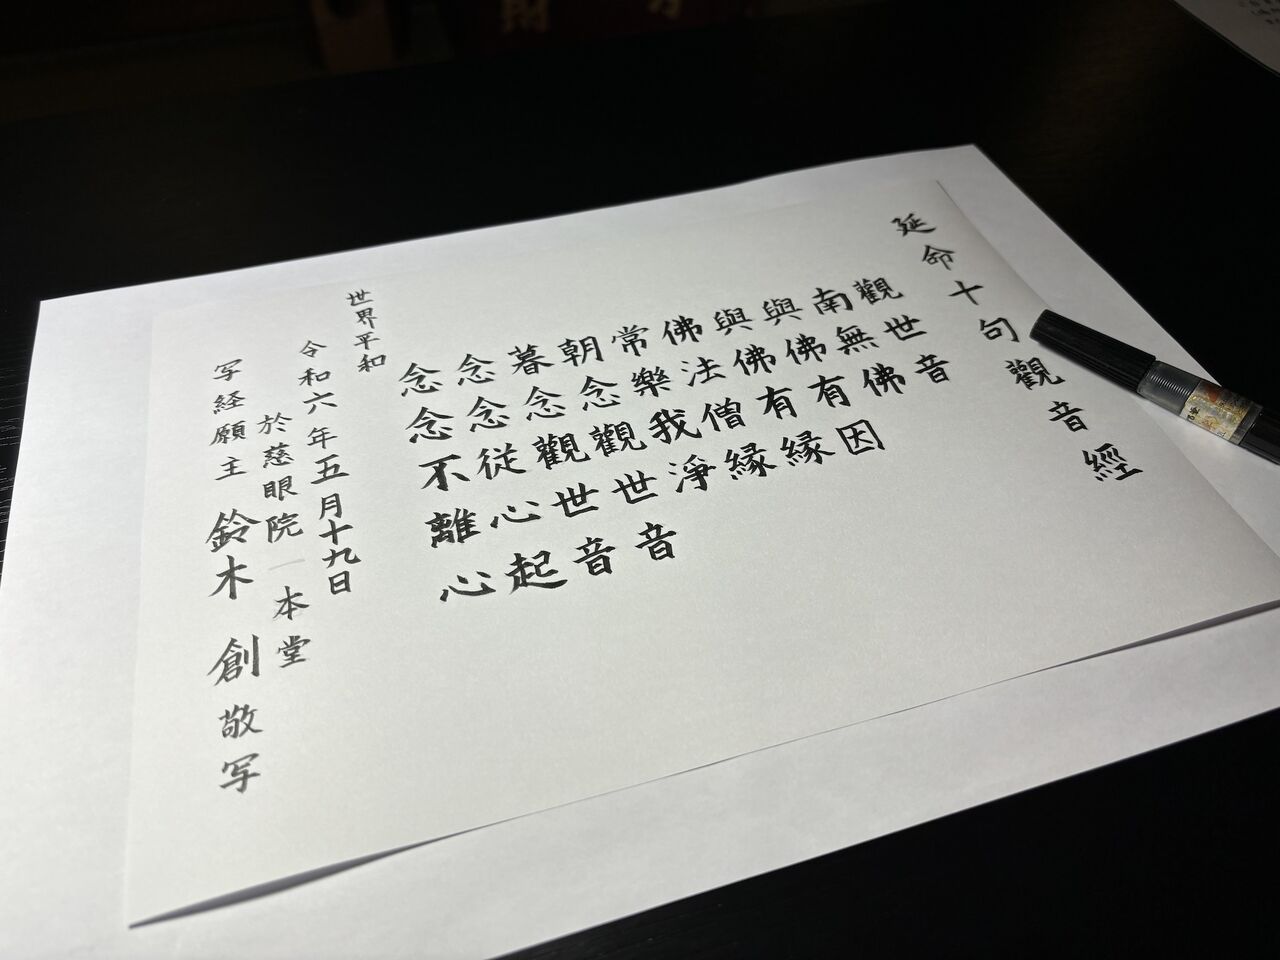 延命十句觀音經
觀世音
南無佛
與佛有因
與佛有縁
佛法僧縁
常樂我淨
朝念觀世音
暮念觀世音
念念從心起
念念不離心
世界平和
令和六年五月十九日
於慈眼院 本堂
写経願主 鈴木 創 敬写